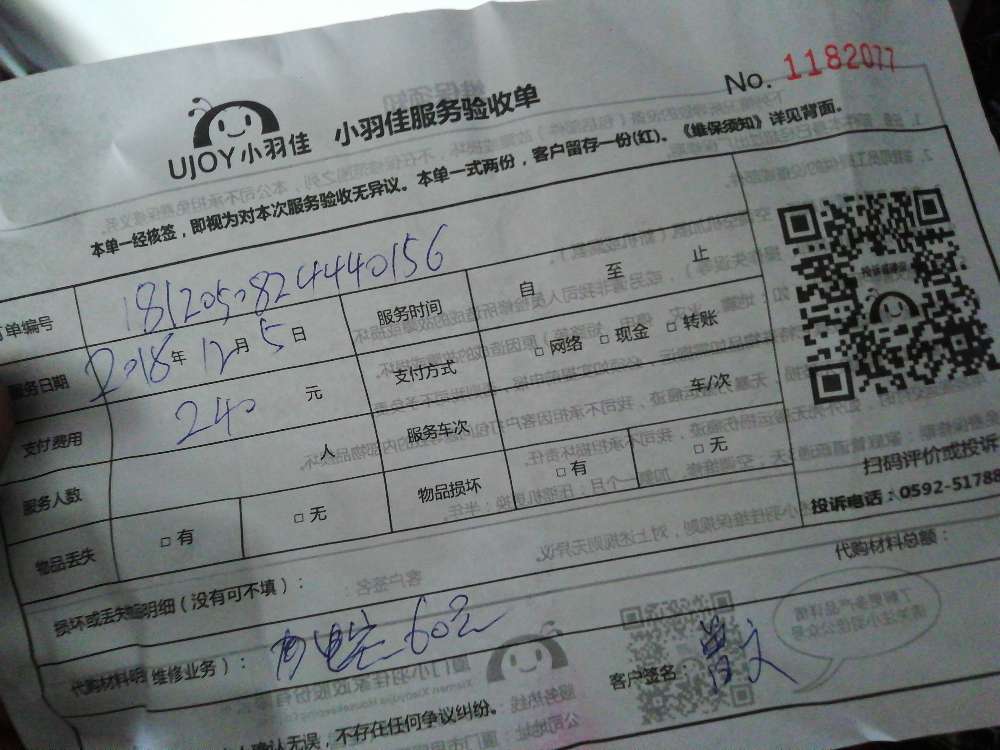 No. 1182077
UJOY小羽佳 小羽佳服务验收单
本单一经核签，即视为对本次服务验收无异议。本单一式两份，客户留存一份(红)。《维保须知》详见背面。
单编号 1812050824440156 服务时间 自 至 止
服务日期 2018年12月5日 支付方式 □ 网络 □ 现金 □ 转账
支付费用 240 元 服务车次 车/次
服务人数 人 物品损坏 □ 有 □ 无
物品丢失 □ 有 □ 无
扫码评价或投诉
投诉电话：0592-51788
损坏或丢失 明细（没有可不填）：
代购材料总额：
代购材料明 维修业务）： 60元
客户签名：
确认无误，不存在任何争议纠纷。